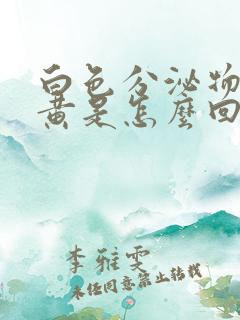 白色分泌物
黄是怎麼回
李雅雯
未经同意禁止转载